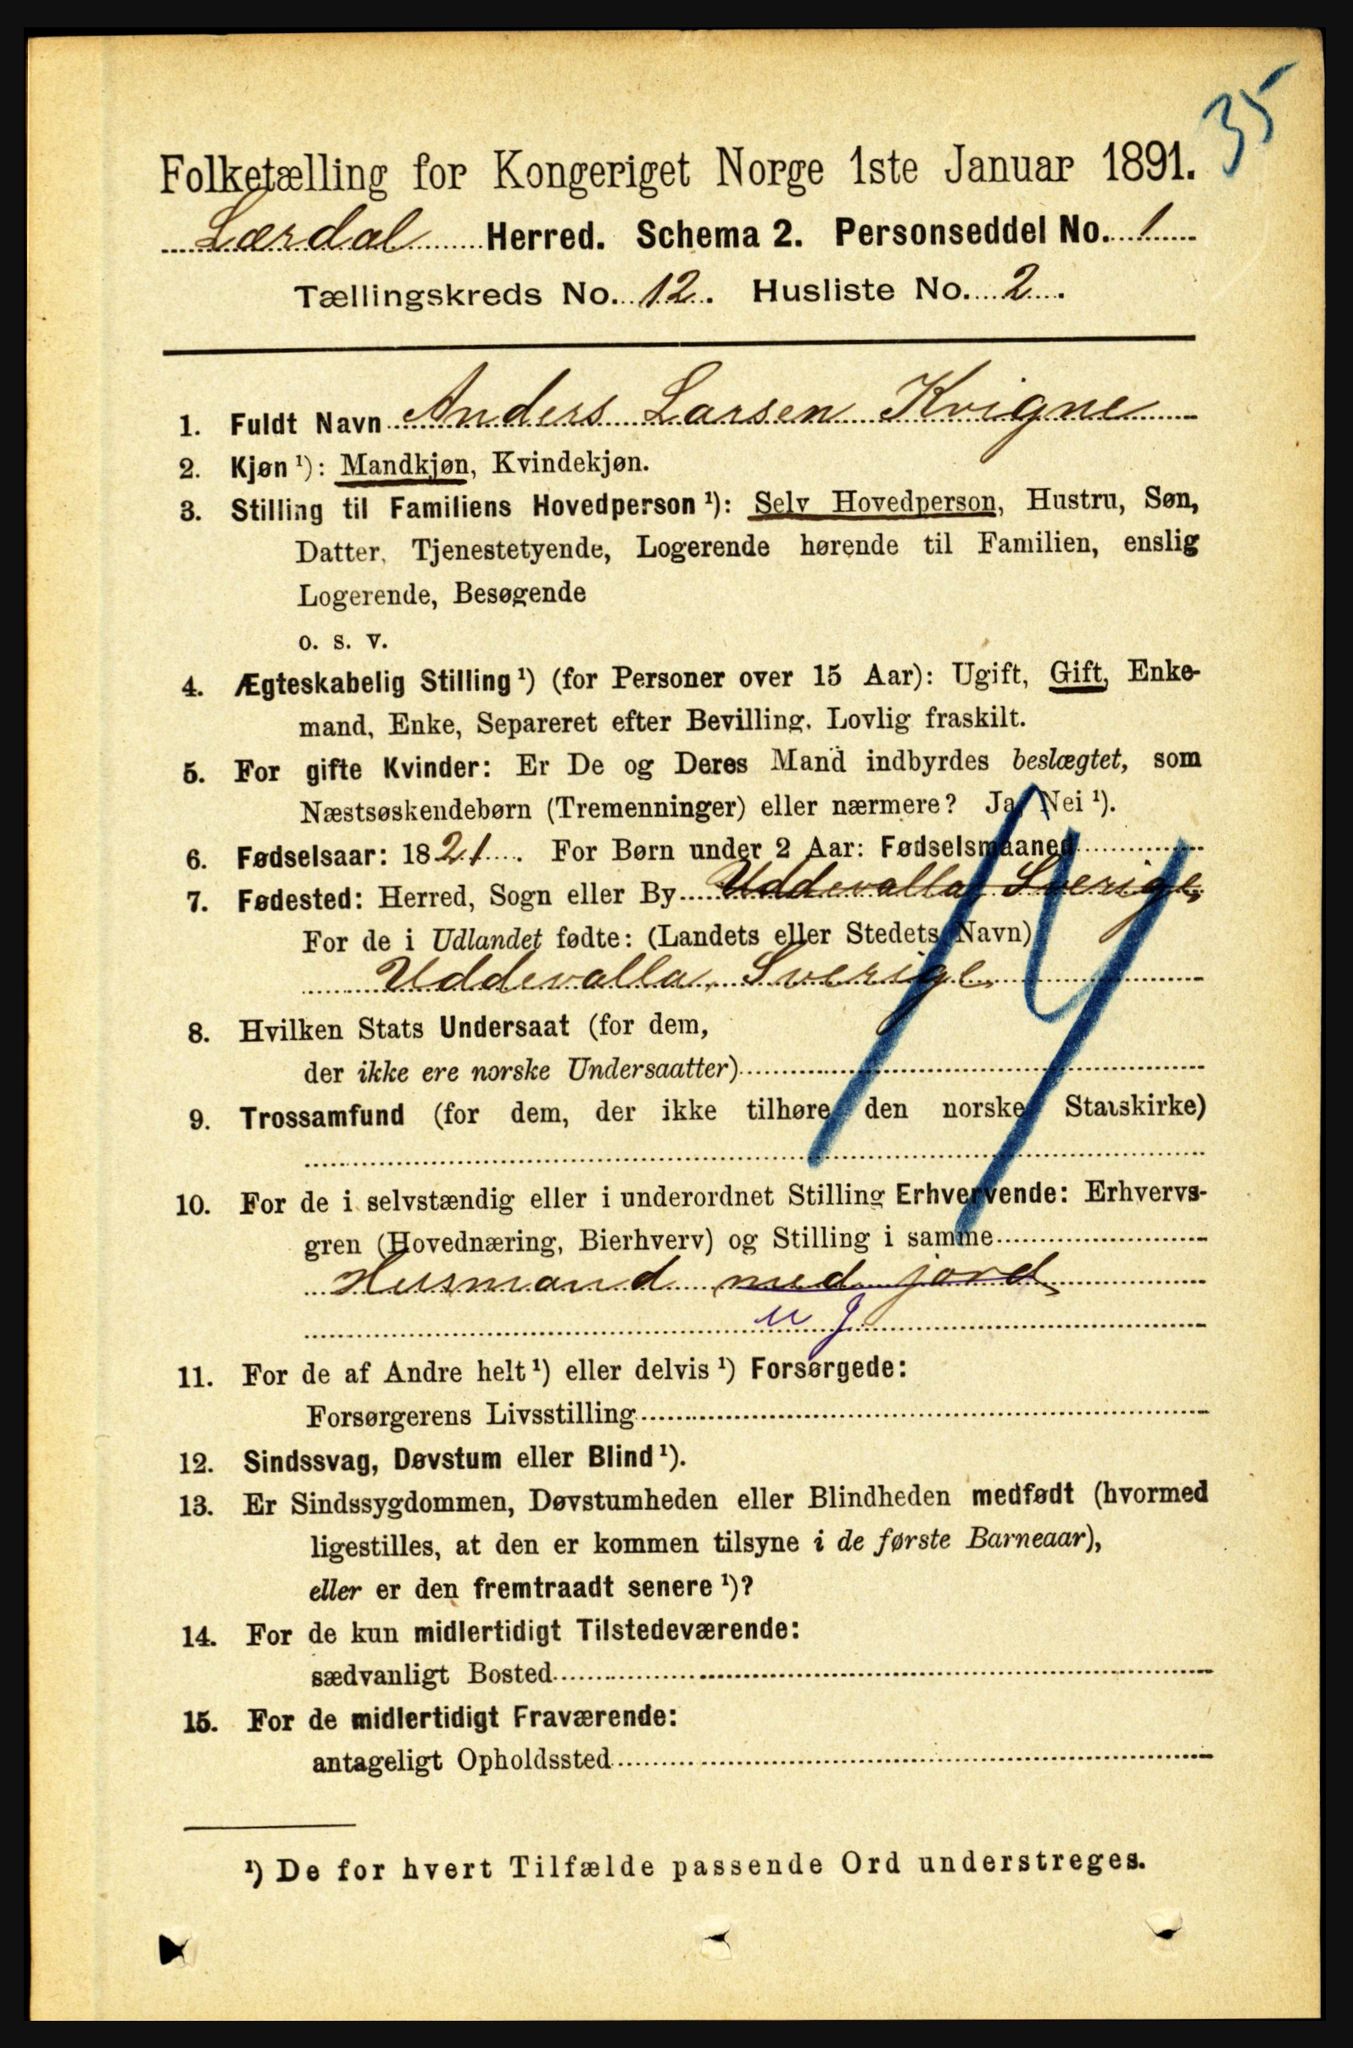 35
Folketælling for Kongeriget Norge 1ste Januar 1891.
Lærdal Herred. Schema 2. Personseddel No. 1
Tællingskreds No. 12. Husliste No. 2.
1. Fuldt Navn Anders Larsen Kvigne
2. Kjøn ¹): Mandkjøn, Kvindekjøn.
3. Stilling til Familiens Hovedperson ¹): Selv Hovedperson, Hustru, Søn,
Datter, Tjenestetyende, Logerende hørende til Familien, enslig
Logerende, Besøgende
o. s. v.
4. Ægteskabelig Stilling ¹) (for Personer over 15 Aar): Ugift, Gift, Enke-
mand, Enke, Separeret efter Bevilling, Lovlig fraskilt.
5. For gifte Kvinder: Er De og Deres Mand indbyrdes beslægtet, som
Næstsøskendebørn (Tremenninger) eller nærmere? Ja, Nei ¹).
6. Fødselsaar: 1821. For Børn under 2 Aar: Fødselsmaaned
7. Fødested: Herred, Sogn eller By Uddevalla Sverige
For de i Udlandet fødte: (Landets eller Stedets Navn)
Uddevalla, Sverige
8. Hvilken Stats Undersaat (for dem,
der ikke ere norske Undersaatter)
9. Trossamfund (for dem, der ikke tilhøre den norske Statskirke)
10. For de i selvstændig eller i underordnet Stilling Erhvervende: Erhvervs-
gren (Hovednæring, Bierhverv) og Stilling i samme
Husmand med jord
u j
11. For de af Andre helt ¹) eller delvis ¹) Forsørgede:
Forsørgerens Livsstilling
12. Sindssvag, Døvstum eller Blind ¹).
13. Er Sindssygdommen, Døvstumheden eller Blindheden medfødt (hvormed
ligestilles, at den er kommen tilsyne i de første Barneaar),
eller er den fremtraadt senere ¹)?
14. For de kun midlertidigt Tilstedeværende:
sædvanligt Bosted
15. For de midlertidigt Fraværende:
antageligt Opholdssted
¹) De for hvert Tilfælde passende Ord understreges.